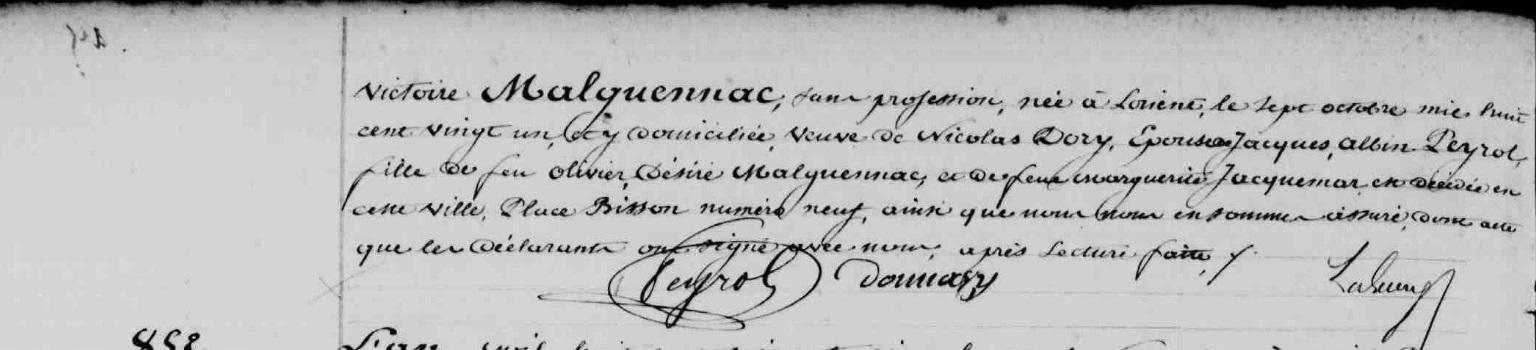 Victoire Malquennac, sans profession, née à Lorient, le sept octobre mil huit
cent vingt un, et y domiciliée, Veuve de Nicolas Dory, Epouse Jacques, Albin Peyrol,
fille de feu Olivier, Désiré Malquennac, et de feue Marguerite Jacquemar est décédée en
cette ville, Place Bisson numéro neuf, ainsi que nous nous en sommes assuré, dont acte
que les Déclarants ont signé avec nous, après Lecture faite ./.
Peyrol
852
L'an mil huit